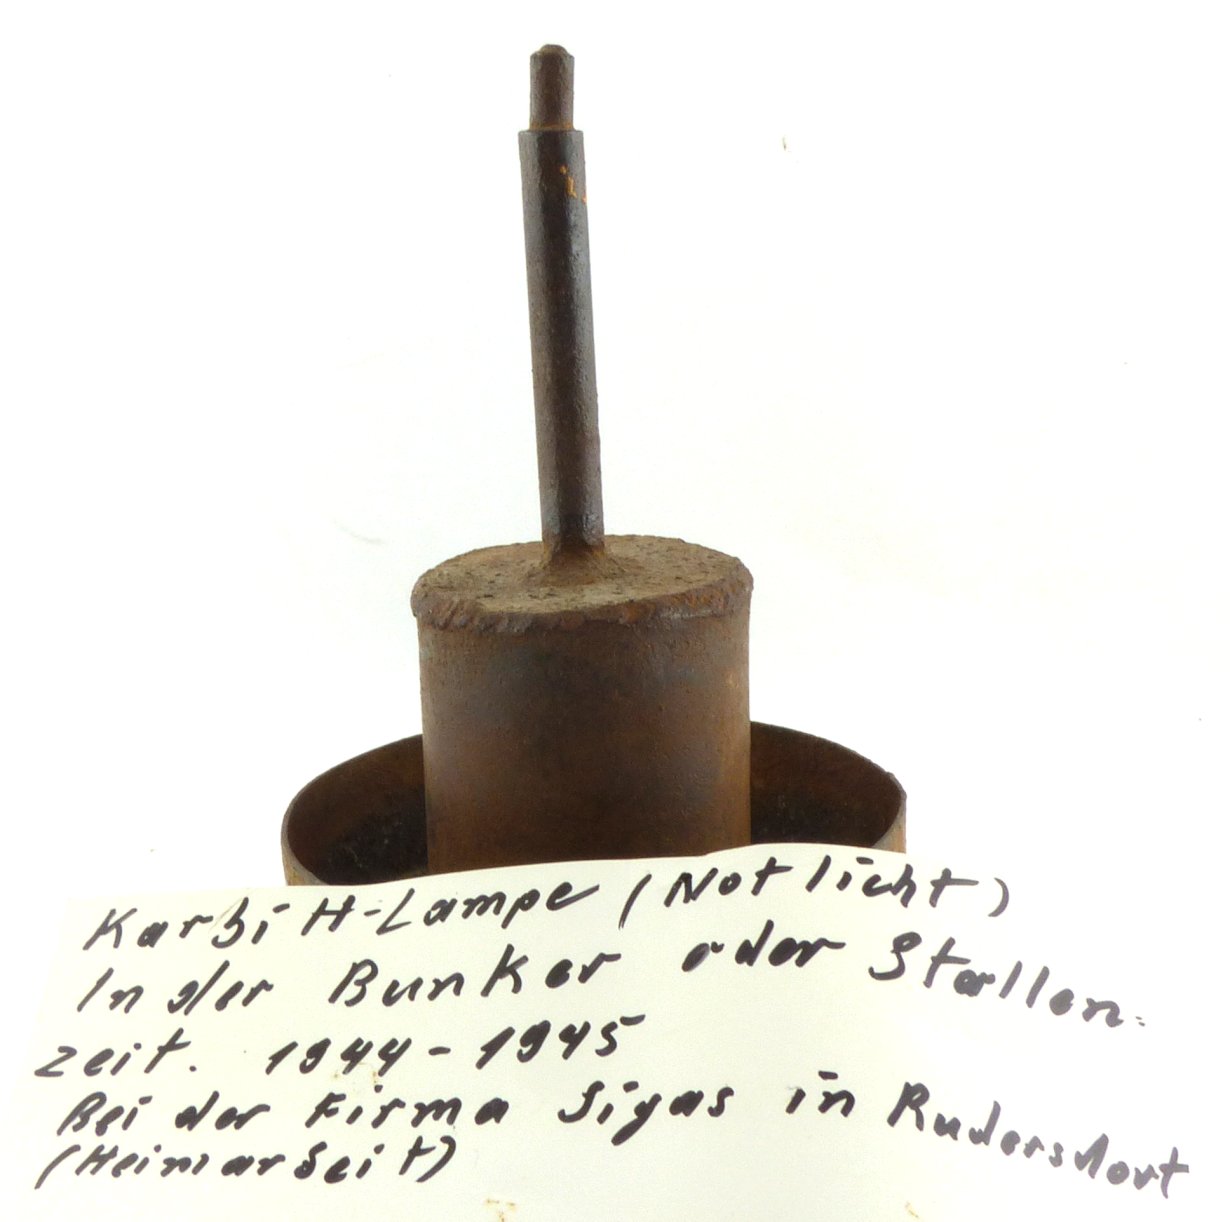 Karbit-Lampe (Notlicht)
In der Bunker oder Stollen-
zeit. 1944-1945
Bei der Firma Sigas in Rudersdort
(Heimarbeit)